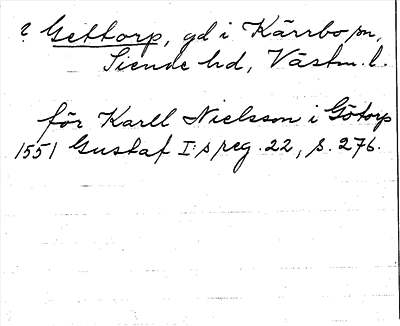 ? Gettorp, gd i Kärrbo sn,
Siende hd, Västm. l.
för Karll Nielsson i Götorp
1551 Gustaf I:s reg. 22, s. 276.